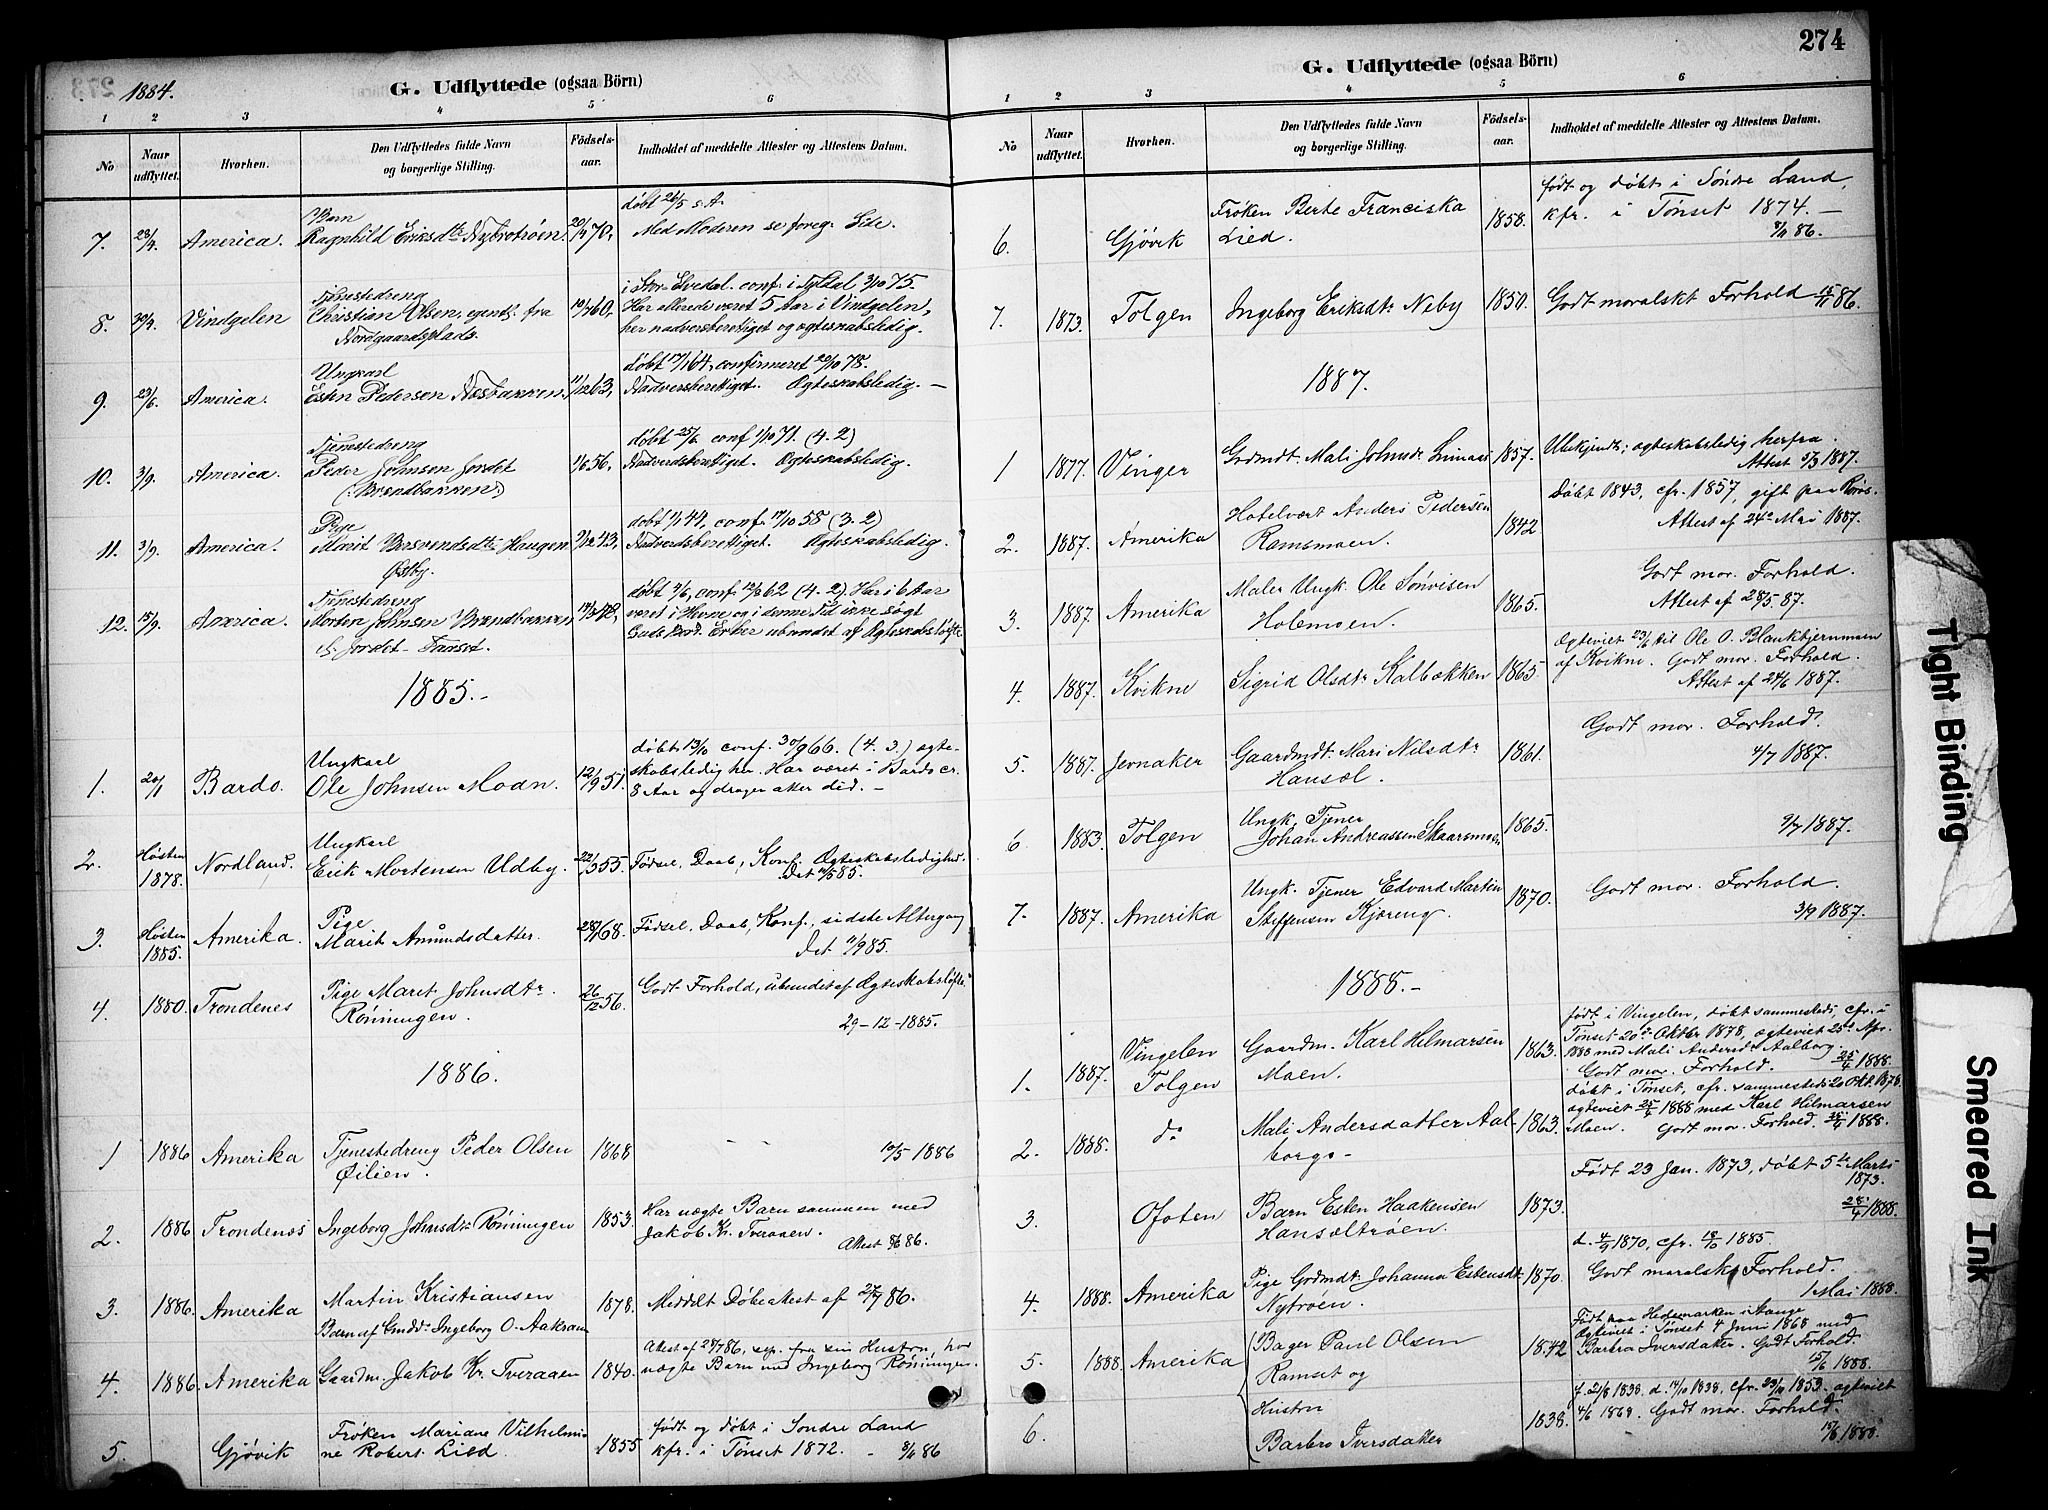 1884.
G. Udflyttede (ogsaa Börn)
1 2 3 4 5 6
No
Naar udflyttet.
Hvorhen.
Den Udflyttedes fulde Navn
og borgerlige Stilling.
Födsels-
aar.
Indholdet af meddelte Attester og Attestens Datum.
7. 23/4. America.
Barn
Ragnhild Eriksdtr
døbt 26/5 s. A.
Med Moderen se foreg. Side.
8. 30/4. Vindgelen
Tjenestedreng
Christian Olsen, egentl. fra
Nordgaardsplads.
10/7 60,
conf. i Tyldal 3/10 75.
Har allerede været 5 Aar i Vindgelen,
her nadversberettiget og ægteskabsledig.
9. 23/6. America.
Ungkarl
Esten Pedersen Næsbakken,
11/12 63,
døbt 17/1 64, confirmeret 20/10 78.
Nadversberettiget. Ægteskabsledig. —
10. 3/9. America.
Tjenestedreng
Peder Johnsen Jordet
(: Brendbakken:)
1/6 56,
døbt 25/6 conf. 1/10 71. (4.2)
Nadverdsberettiget. Ægteskabsledig.
11. 3/9. America.
Pige
Marit Haugen
Østby.
døbt 1/1 44, conf. 17/10 58 (3.2)
Nadverdsberettiget. Ægteskabsledig.
12. 15/9. America.
Tjenestedreng
Morten Johnsen Brendbakken
Jordet - Tønset.
conf. 62 (4.2). Har i 6 Aar
været i og i denne Tid ikke søgt
Guds Bord. Er her ubundet af Ægteskabsløfte
1885.-
1. 20/1 Bardo.
Ungkarl
Ole Johnsen Moan.
12/9 51.
døbt 13/10 conf. 30/9 66. (4.3.) ægte-
skabsledig her. Har været i Bardo cr.
8 Aar og drager atter did. —
2. Høsten 1878. Nordland.
Ungkarl
Erik Mortensen Udby.
22/3 55
Fødsel, Daab, Konf. Ægteskabsledighed.
Det 11/5 85.
3. Høsten 1885. Amerika.
Pige
Marit Amundsdatter.
28/1 68.
Fødsel, Daab, Konf., sidste Altergang
Det 11/9 85.
4. 1880. Trondenes
Pige Maret Johnsdtr
Rønningen.
26/12 56.
Godt Forhold, ubundet af Ægteskabsløfte.
29-12-1885.
1886.
1 1886 Amerika
Tjenestedreng Peder Olsen
Øilien.
1868
10/5 1886
2. 1886 Trondenæs
Ingeborg Johnsdtr Rønningen
1853.
Har uægte Barn sammen med
Jakob Kr. Tveraaen.
Attest 86.
3. 1886. Amerika
Martin Kristiansen
Barn af Gmdd. Ingeborg O. Aakrann
1878.
Meddelt Døbeattest af 27/7 86.
4. 1886. Amerika
Gaardm. Jakob Kr. Tveraaen
1840.
Attest af 28/7 86, sep. fra sin Hustru, har
uægte Barn med Ingeborg Rønningen.
5. Gjøvik
Frøken Mariane Vilhelmi-
ne Robert Lied
1855
født og døbt i Søndre Land
kfr. i Tønset 1872. - 8/11 86
274
G. Udflyttede (ogsaa Börn)
1 2 3 4 5 6
No
Naar udflyttet.
Hvorhen.
Den Udflyttedes fulde Navn
og borgerlige Stilling.
Födsels-
aar.
Indholdet af meddelte Attester og Attestens Datum.
6. Gjøvik
Frøken Berte Franciska
Lied.
1858.
født og døbt i Søndre Land,
kfr. i Tønset 1874. —
8/11 86.
7. 1873. Tolgen
Ingeborg Eriksdtr Neby
1850.
Godt moralskt Forhold 15/11 86.
1887.
1 1877. Vinger
Grdmdt. Mali Johnsdr
1857.
Ubekjendt; ægteskabsledig herfra.
Attest 5/3 1887.
2. 1887. Amerika
Hotelvært Anders Pedersen
Ramsmoen.
1842
Døbt 1843, cfr. 1857, gift paa Røros.
Attest af 24de Mai 1887.
3. 1887. Amerika
Maler Ungk. Ole Sønvisen
Holemoen.
1865.
Godt mor. Forhold.
Attest af 28/5 87.
4 1887. Kvikne
Sigrid Olsdtr Kalbækken
1865.
Ægteviet 23/6 til Ole O. Blankbjernmoen
af Kvikne. Godt mor. Forhold.
Attest af 24/6 1887.
5. 1887. Jevnaker
Gaardmdt. Mari Nilsdtr
Hansæl.
1861.
Godt mor. Forhold.
4/7 1887.
6 1883. Tolgen
Ungk. Tjener
Johan Andreassen Skaarsmoen
1865.
9/7 1887.
7. 1887. Amerika
Ungk. Tjener Edvard Martin
Steffensen Kjøreng.
1870.
Godt mor. Forhold.
3/9 1887.
1888.-
1. 1887. Vingelen
Tolgen
Gaardm. Karl Hilmarsen
Moen.
1863.
født i Vingelen, døbt sammesteds, cfr. i
Tønset 20de Oktbr. 1878, ægteviet 25de Apr.
1888 med Mali Andersdr Aalborg.
Godt mor. Forhold. 25/4 1888.
2. 1888. do
Mali Andersdatter Aal-
borgo -
1863.
døbt i Tønset, cfr. sammesteds 20 Okt. 1878.
ægteviet 25/4 1888 med Karl Hilmarsen
Moen. Godt mor. Forhold. 25/4 1888.
3. Ofoten
Barn Esten Haakensen
Hansæltrøen.
1873.
Født 23 Jan. 1873, døbt 5te Marts
1873.
28/4 1888.
4. 1888. Amerika
Pige Grdmdt. Johanna Estensdtr
Nytrøen.
1870.
d. 4/9 1870, cfr. 18/10 1885.
Godt moralsk Forhold.
1 Mai 1888.
5. 1888. Amerika
Bager Paul Olsen
Ramset og
1842
Født paa Hedemarken i Stange
Ægteviet i Tønset 4 Juni 1868 med
Barbro Iversdatter. Godt Forhold.
15/6 1888.
6.
Hustru
Barbro Iversdatter
1838.
f. 21/8 1838. d. 14/10 1838, cfr. 23/10 1853. ægteviet
4/6 1868. Godt mor. Forhold.
15/6 1888.
Tight Binding
Smeared Ink